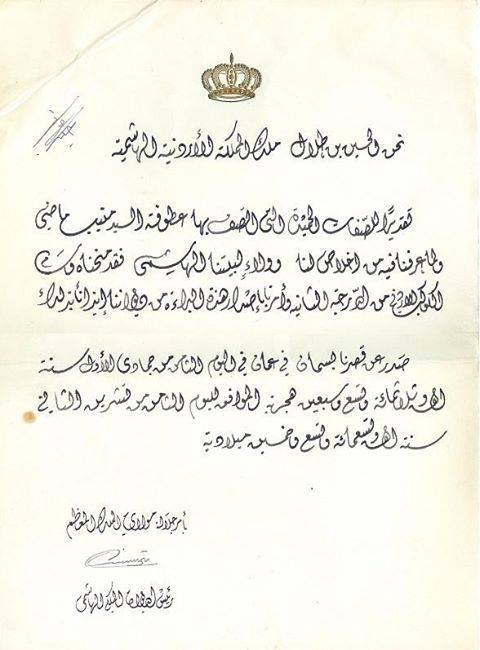 نحن الحسين بن طلال ملك المملكة الأردنية الهاشمية
تقديرًا للصفات الحميدة التى اتصف بها عطوفة السيد منيب ماضي
ولما عرفناه فيه من اخلاص لنا وولاء لبيتنا الهاشمي فقد منحناه وسام
الكوكب الاردني من الدرجة الثانية وأمرنا بإصدار هذه البراءة من ديواننا إيذانا بذلك
صدر عن قصرنا بسمان في عمان في اليوم الثامن من جمادى الأول سنة
الف وثلاثمائة وتسع وسبعين هجرية الموافق لليوم الثامن من تشرين الثاني
سنة الف وتسعمائة وتسع وخمسين ميلادية
بأمر جلالة مولاي الملك المعظم
رئيس الديوان الملكي الهاشمي